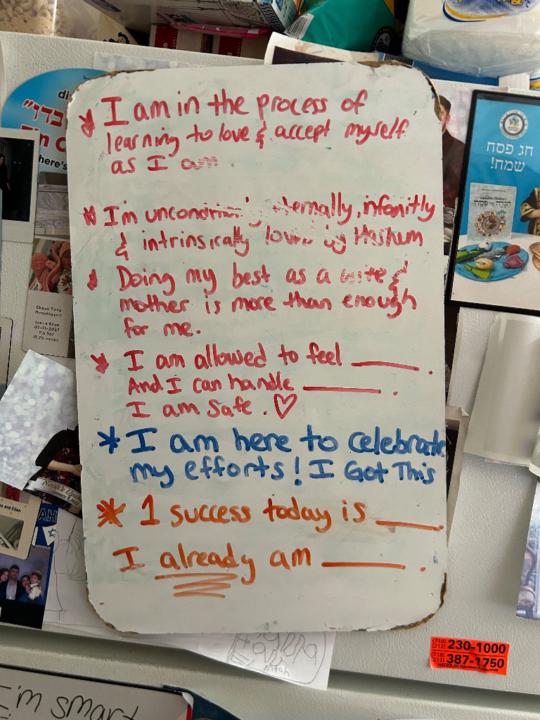 * I am in the process of
learning to love & accept myself
as I am
* I'm eternally, infinitly
& intrinsically loved by Hashem
* Doing my best as a wife &
mother is more than enough
for me.
* I am allowed to feel ______.
And I can handle ______.
I am safe. ♡
* I am here to celebrate
my efforts! I Got This
* 1 success today is ______
I already am ______.
חג פסח
שמח!
230-1000
387-1750
I'm smart